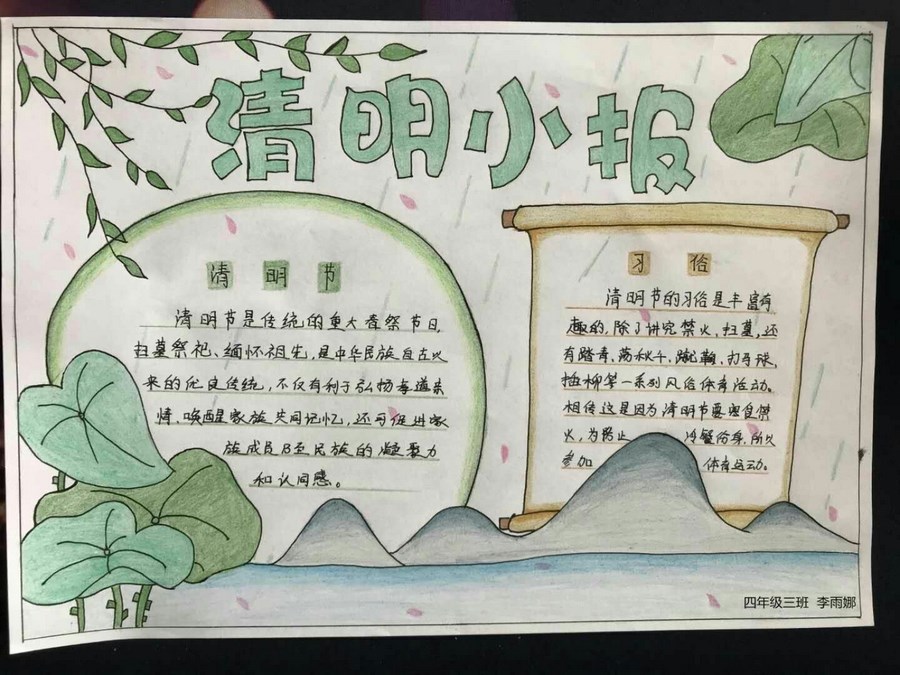 清明小报
清明节
清明节是传统的重大春祭节日,
扫墓祭祀、缅怀祖先,是中华民族自古以
来的优良传统,不仅有利于弘扬孝道亲
情、唤醒家族共同记忆,还可促进家
族成员乃至民族的凝聚力
和认同感。
习俗
清明节的习俗是丰富有
趣的,除了讲究禁火、扫墓,还
有踏青、荡秋千、蹴鞠、打马球、
插柳等一系列风俗体育活动。
相传这是因为清明节要寒食禁
火,为防止 冷餐伤身,所以
参加 体育运动。
四年级三班 李雨娜